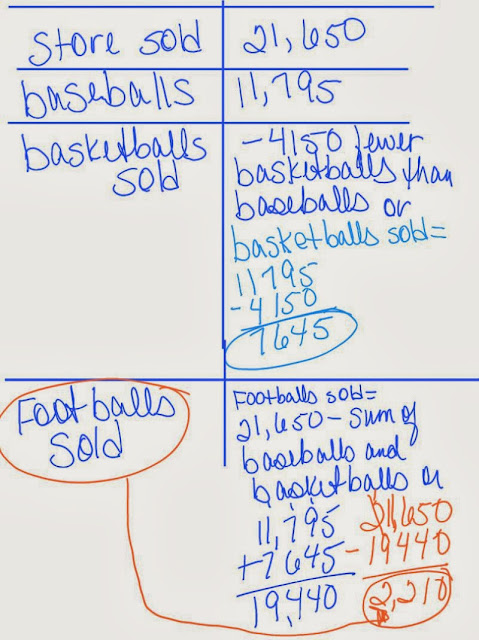 store sold 21,650
baseballs 11,795
basketballs sold
-4150 fewer
basketballs than
baseballs or
basketballs sold=
11795
-4150
7645
Footballs
Sold
Footballs sold=
21,650-sum of
baseballs and
basketballs or
11,795
+7645
19,440
21,650
-19440
2,210